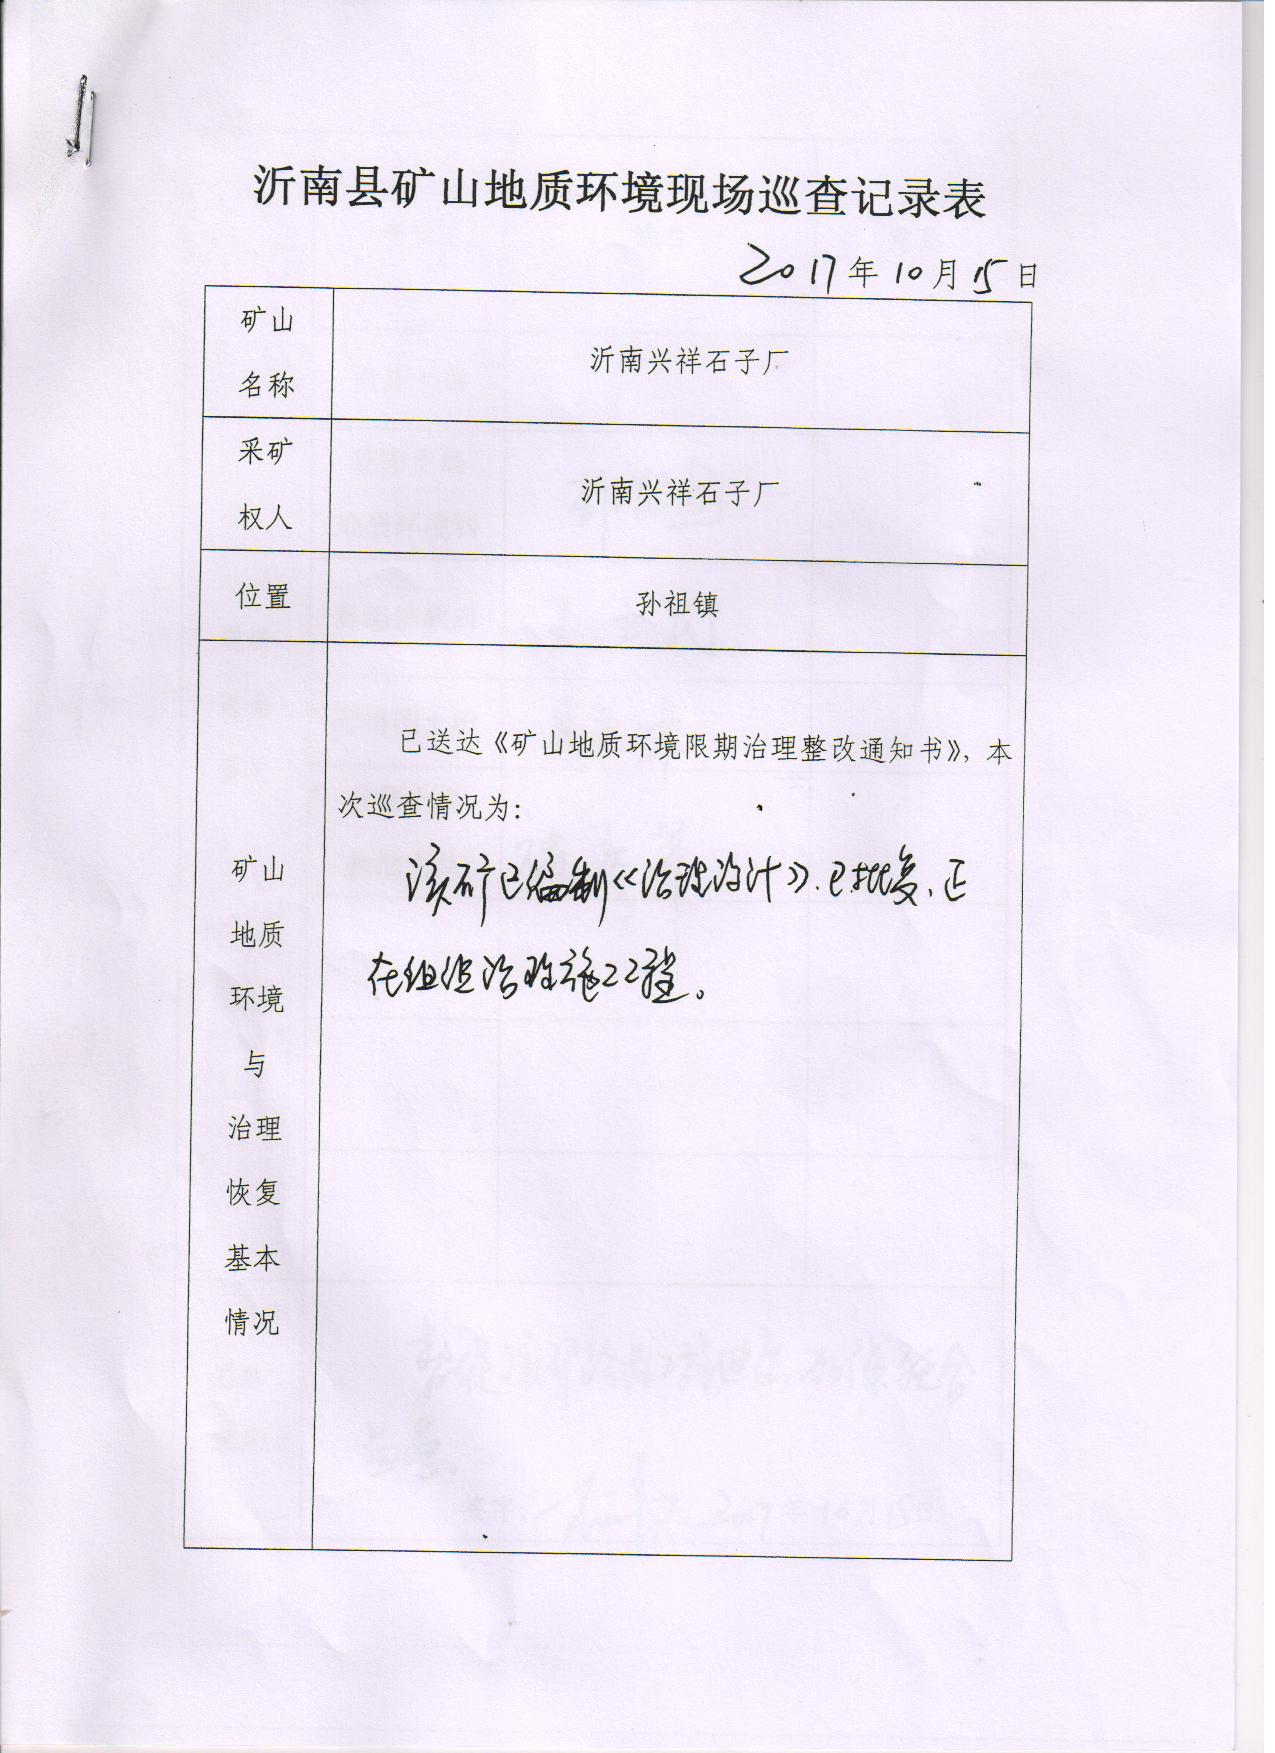 沂南县矿山地质环境现场巡查记录表
2017年10月15日
矿山
名称
沂南兴祥石子厂
采矿
权人
沂南兴祥石子厂
位置
孙祖镇
矿山
地质
环境
与
治理
恢复
基本
情况
已送达《矿山地质环境限期治理整改通知书》，本
次巡查情况为：
该矿已编制《治理设计》.已批复.正
在组织治理施工工程。